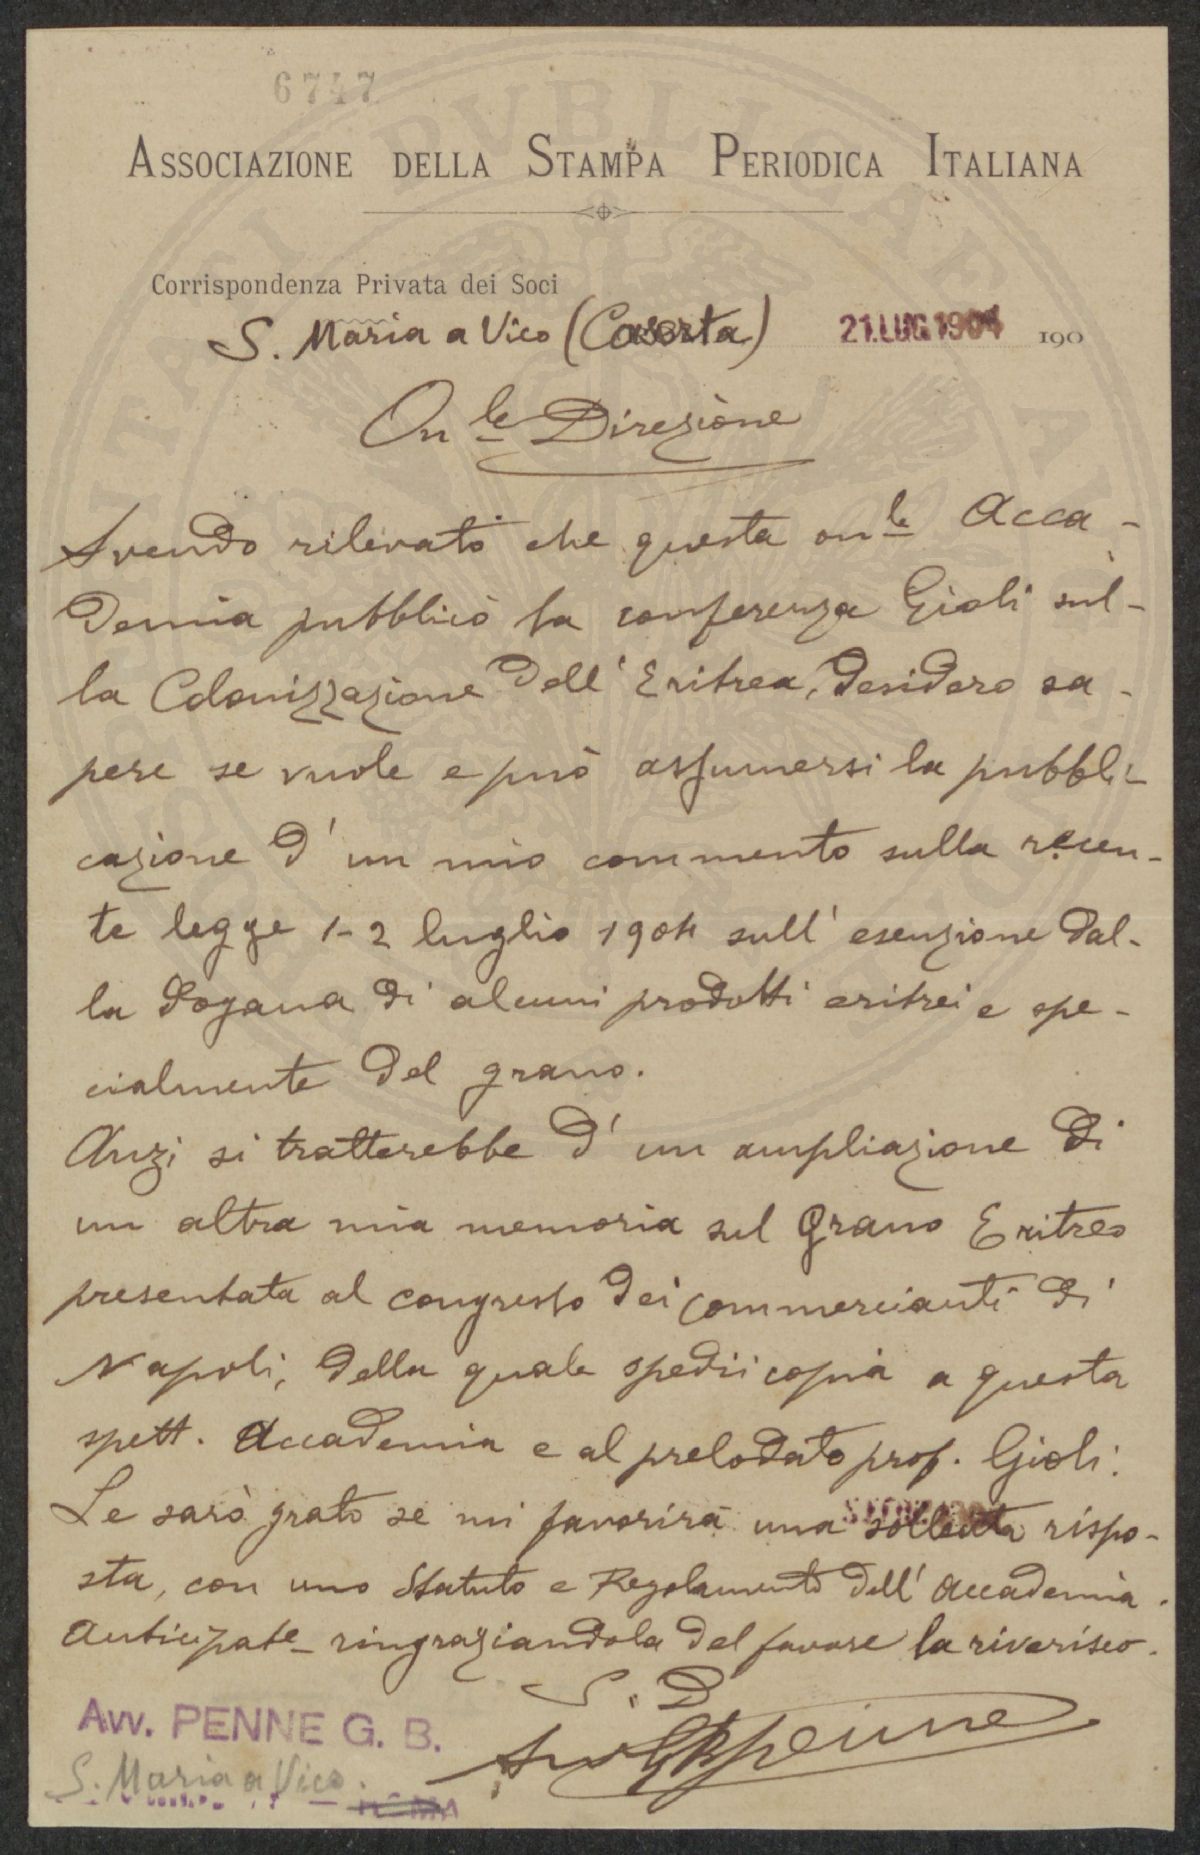 6747
ASSOCIAZIONE DELLA STAMPA PERIODICA ITALIANA
Corrispondenza Privata dei Soci
S. Maria a Vico (Caserta) 21.LUG.1904 190
On le Direzione
Avendo rilevato che questa on le Acca-
demia pubblicò la conferenza Gioli sul-
la Colonizzazione dell' Eritrea, desidero sa-
pere se vuole e può assumersi la pubbli-
cazione d' un mio commento sulla recen-
te legge 1-2 luglio 1904 sull' esenzione dal-
la dogana di alcuni prodotti eritrei e spe-
cialmente del grano.
Anzi si tratterebbe d' un ampliazione di
un altra mia memoria sul Grano Eritreo
presentata al congresso dei commercianti di
Napoli, della quale spedii copia a questa
spett. Accademia e al prelodato prof. Gioli.
Le sarò grato se mi favorirà una sollecita rispo-
sta, con uno Statuto e Regolamento dell' Accademia.
Anticipate ringraziandola del favore la riverisco.
S. D
Avv GB Penne
Avv. PENNE G. B.
S. Maria a Vico.
ROMA